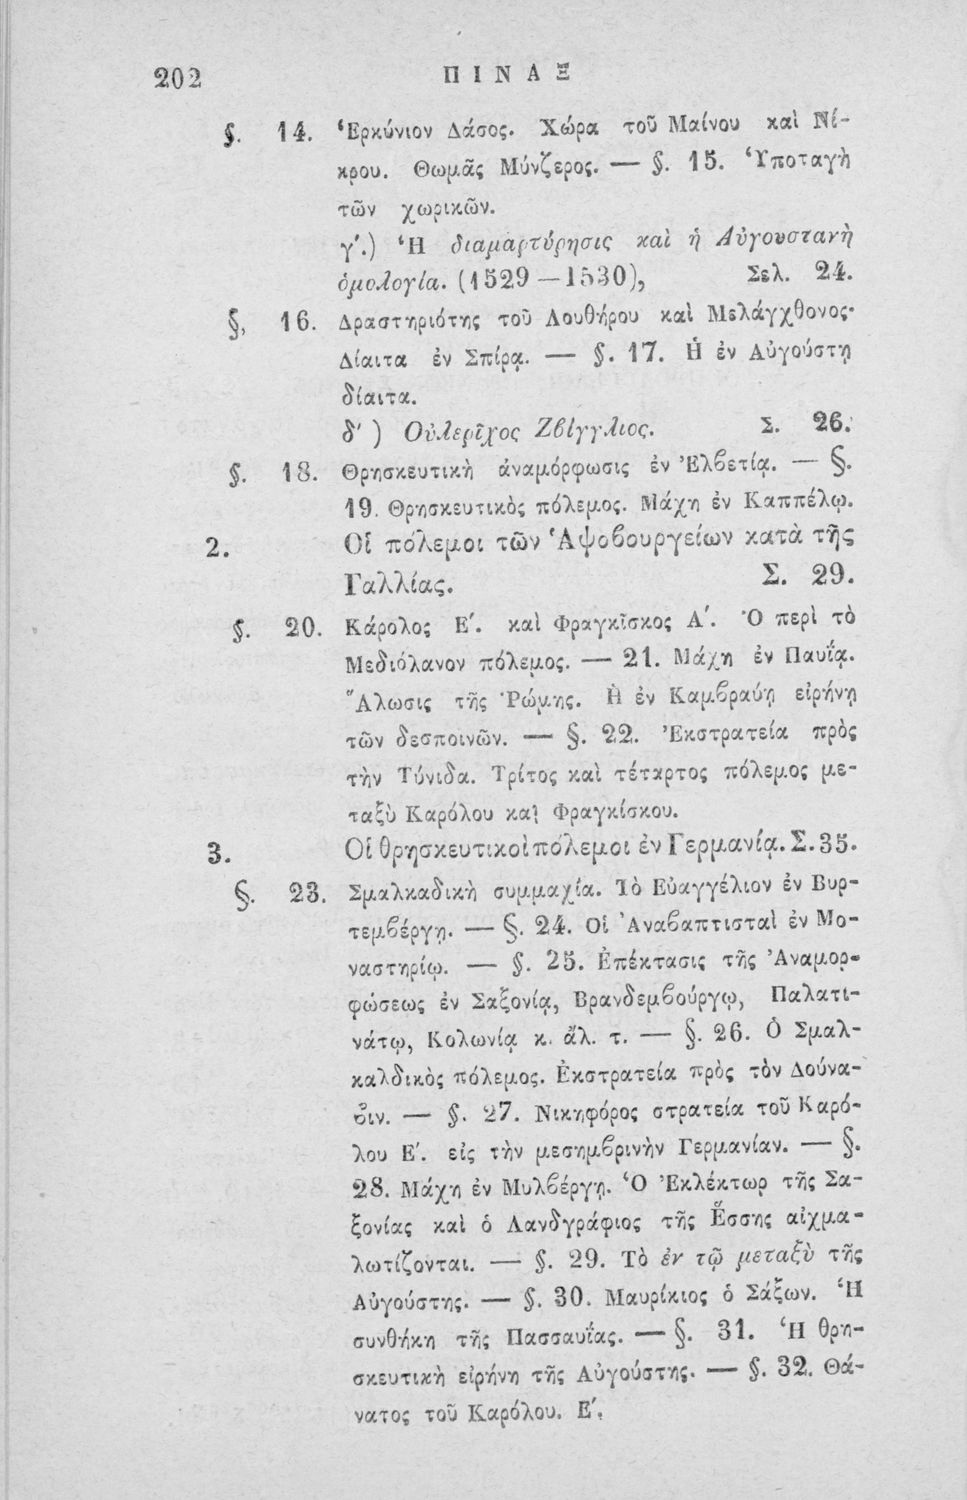 202 ΠΙΝΑΞ
§. 14. Ἑρκύνιον Δάσος. Χώρα τοῦ Μαίνου καὶ Νί-
κρου. Θωμᾶς Μύνζερος. — §. 15. Ὑποταγὴ
τῶν χωρικῶν.
γ΄.) Ἡ διαμαρτύρησις καὶ ἡ Αὐγουστανὴ
ὁμολογία. (1529 — 1530), Σελ. 24.
§, 16. Δραστηριότης τοῦ Λουθήρου καὶ Μελάγχθονος·
Δίαιτα ἐν Σπίρᾳ. — §. 17. Ἡ ἐν Αὐγούστῃ
δίαιτα.
δ΄ ) Οὐλερῖχος Ζβίγγλιος. Σ. 26.
§. 18. Θρησκευτικὴ ἀναμόρφωσις ἐν Ἑλβετίᾳ. — §.
19. Θρησκευτικὸς πόλεμος. Μάχη ἐν Καππέλῳ.
2. Οἱ πόλεμοι τῶν Ἁψοβουργείων κατὰ τῆς
Γαλλίας. Σ. 29.
§. 20. Κάρολος Ε΄. καὶ Φραγκῖσκος Α΄. Ὁ περὶ τὸ
Μεδιόλανον πόλεμος. — 21. Μάχη ἐν Παυΐᾳ.
Ἅλωσις τῆς Ῥώμης. Ἡ ἐν Καμβραύῃ εἰρήνη
τῶν δεσποινῶν. — §. 22. Ἐκστρατεία πρὸς
τὴν Τύνιδα. Τρίτος καὶ τέταρτος πόλεμος με-
ταξὺ Καρόλου καὶ Φραγκίσκου.
3. Οἱ θρησκευτικοὶ πόλεμοι ἐν Γερμανίᾳ. Σ. 35.
§. 23. Σμαλκαδικὴ συμμαχία. Τὸ Εὐαγγέλιον ἐν Βυρ-
τεμβέργῃ. — §. 24. Οἱ Ἀναβαπτισταὶ ἐν Μο-
ναστηρίῳ. — §. 25. Ἐπέκτασις τῆς Ἀναμορ-
φώσεως ἐν Σαξονίᾳ, Βρανδεμβούργῳ, Παλατι-
νάτῳ, Κολωνίᾳ κ. ἄλ. τ. — §. 26. Ὁ Σμαλ-
καλδικὸς πόλεμος. Ἐκστρατεία πρὸς τὸν Δούνα-
βιν. — §. 27. Νικηφόρος στρατεία τοῦ Καρό-
λου Ε΄. εἰς τὴν μεσημβρινὴν Γερμανίαν. — §.
28. Μάχη ἐν Μυλβέργῃ. Ὁ Ἐκλέκτωρ τῆς Σα-
ξονίας καὶ ὁ Λανδγράφιος τῆς Ἕσσης αἰχμα-
λωτίζονται. — §. 29. Τὸ ἐν τῷ μεταξὺ τῆς
Αὐγούστης. — §. 30. Μαυρίκιος ὁ Σάξων. Ἡ
συνθήκη τῆς Πασσαυΐας. — §. 31. Ἡ θρη-
σκευτικὴ εἰρήνη τῆς Αὐγούστης. — §. 32. Θά-
νατος τοῦ Καρόλου. Ε΄.